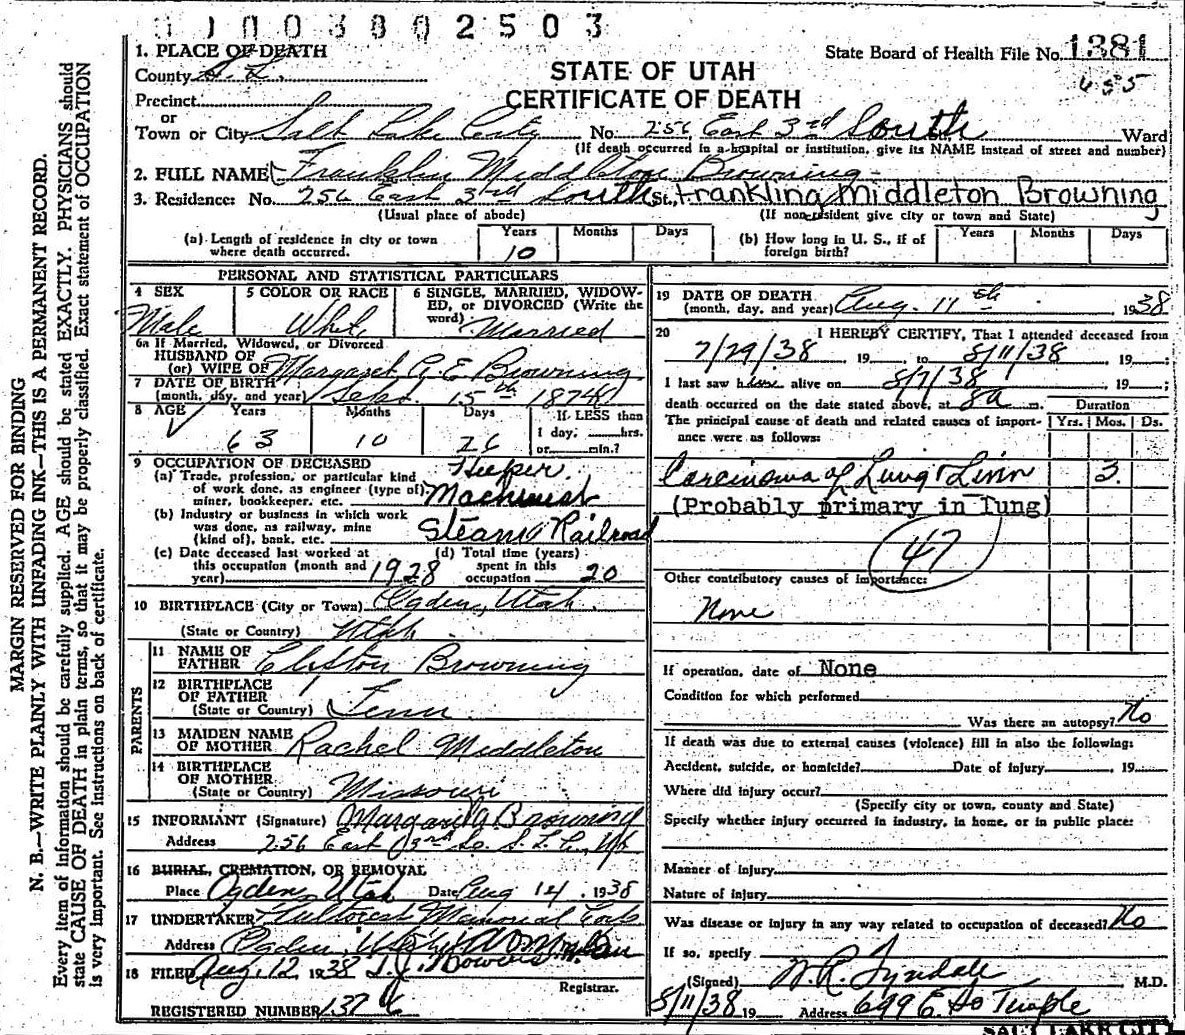 3 8 0 2 5 0 3
1. PLACE OF DEATH
State Board of Health File No. 1381
County S. L.
STATE OF UTAH
Precinct
CERTIFICATE OF DEATH
or
Town or City Salt Lake City No. 256 East 3rd South Ward
(If death occurred in a hospital or institution, give its NAME instead of street and number)
2. FULL NAME Franklin Middleton Browning
3. Residence: No. 256 East 3rd South St., Frankling Middleton Browning
(Usual place of abode) (If non-resident give city or town and State)
(a) Length of residence in city or town where death occurred. Years 10 Months Days
(b) How long in U. S., if of foreign birth? Years Months Days
PERSONAL AND STATISTICAL PARTICULARS
4 SEX
Male
5 COLOR OR RACE
White
6 SINGLE, MARRIED, WIDOW-
ED, or DIVORCED (Write the
word) Married
6a If Married, Widowed, or Divorced
HUSBAND OF
(or) WIFE OF Margaret A. E. Browning
7 DATE OF BIRTH
(month, day, and year) Sept. 15th 1874
8 AGE Years Months Days If LESS than
63 10 26 1 day, hrs.
or min.?
9 OCCUPATION OF DECEASED
(a) Trade, profession, or particular kind
of work done, as engineer (type of)
miner, bookkeeper, etc. Machinist
(b) Industry or business in which work
was done, as railway, mine
(kind of), bank, etc. Steam Railroad
(c) Date deceased last worked at
this occupation (month and
year) 1928
(d) Total time (years)
spent in this
occupation 20
10 BIRTHPLACE (City or Town) Ogden, Utah.
(State or Country) Utah.
PARENTS
11 NAME OF
FATHER Browning
12 BIRTHPLACE
OF FATHER
(State or Country) Tenn.
13 MAIDEN NAME
OF MOTHER Rachel Middleton
14 BIRTHPLACE
OF MOTHER
(State or Country) Missouri
15 INFORMANT (Signature) Margaret A. Browning
Address 256 East 3rd So. S. L. C., Ut
16 BURIAL, CREMATION, OR REMOVAL
Place Ogden, Utah Date Aug 14, 1938
17 UNDERTAKER Memorial
Address Ogden, Utah
18 FILED Aug. 12 1938
Registrar.
REGISTERED NUMBER 1376
19 DATE OF DEATH
(month, day, and year) Aug. 11th 1938
20 I HEREBY CERTIFY, That I attended deceased from
7/29/38, 19 to 8/11/38, 19;
I last saw him alive on 8/7/38, 19;
death occurred on the date stated above, at 8a m.
Duration
The principal cause of death and related causes of import-
ance were as follows:
Yrs. Mos. Ds.
Carcinoma of Lung & Liver 3
(Probably primary in lung)
47
Other contributory causes of importance:
None
If operation, date of None
Condition for which performed
Was there an autopsy? No
If death was due to external causes (violence) fill in also the following:
Accident, suicide, or homicide? Date of injury, 19
Where did injury occur?
(Specify city or town, county and State)
Specify whether injury occurred in industry, in home, or in public place:
Manner of injury
Nature of injury
Was disease or injury in any way related to occupation of deceased? No
If so, specify
(Signed) W. R. Tyndale M.D.
8/11/38 19 Address 699 E. So Temple
SALT LAKE CITY
MARGIN RESERVED FOR BINDING
N. B.—WRITE PLAINLY WITH UNFADING INK—THIS IS A PERMANENT RECORD.
Every item of information should be carefully supplied. AGE should be stated EXACTLY. PHYSICIANS should
state CAUSE OF DEATH in plain terms, so that it may be properly classified. Exact statement of OCCUPATION
is very important. See instructions on back of certificate.